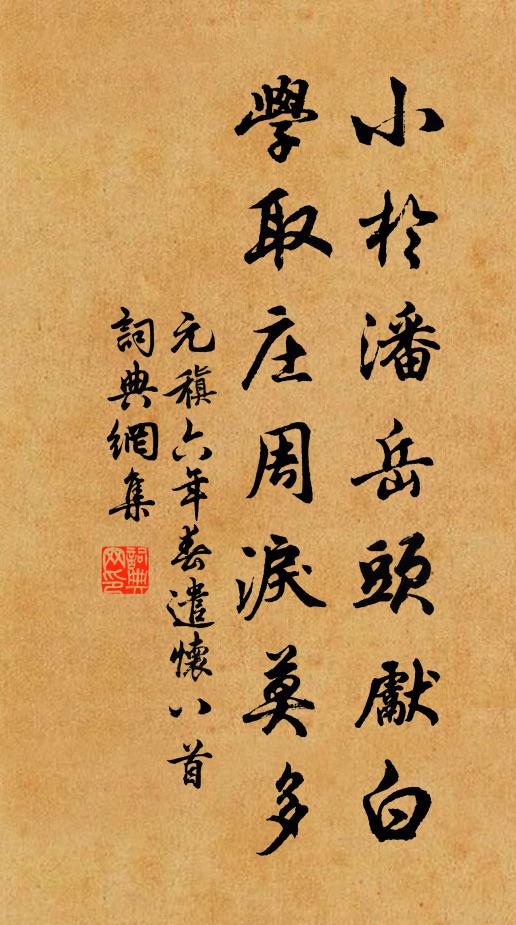 小於潘岳頭獻白
學取庄周淚莫多
元稹六年春遣懷八首
詞典網集
詞典網印